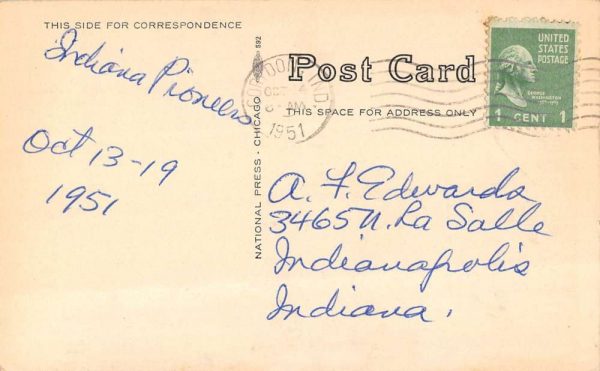 THIS SIDE FOR CORRESPONDENCE
Indiana Pioneers
Oct 13-19
1951
NATIONAL PRESS - CHICAGO
592
Post Card
THIS SPACE FOR ADDRESS ONLY
OCT
AM
1951
UNITED
STATES
POSTAGE
GEORGE
WASHINGTON
1 CENT 1
A. F. Edwards
3465 N. La Salle
Indianapolis
Indiana.